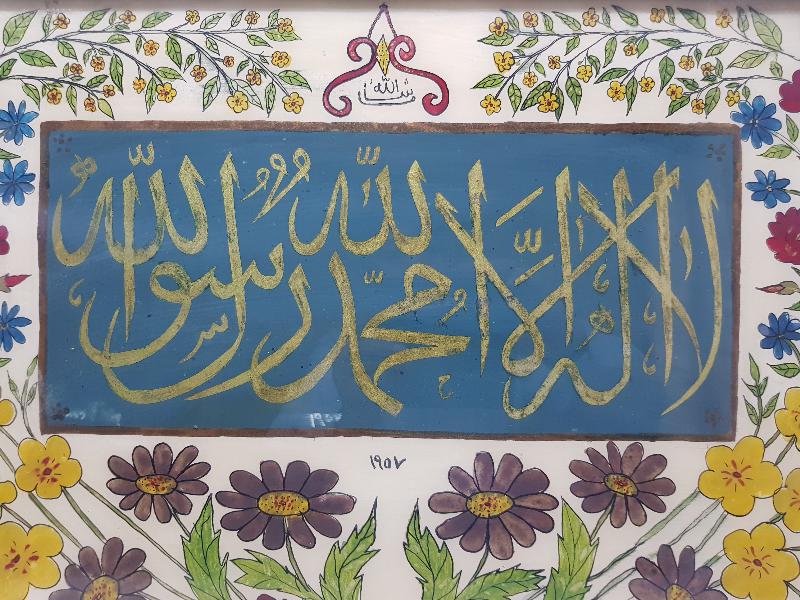 ما شاء الله
لا إله إلا الله محمد رسول الله
١٩٥٧